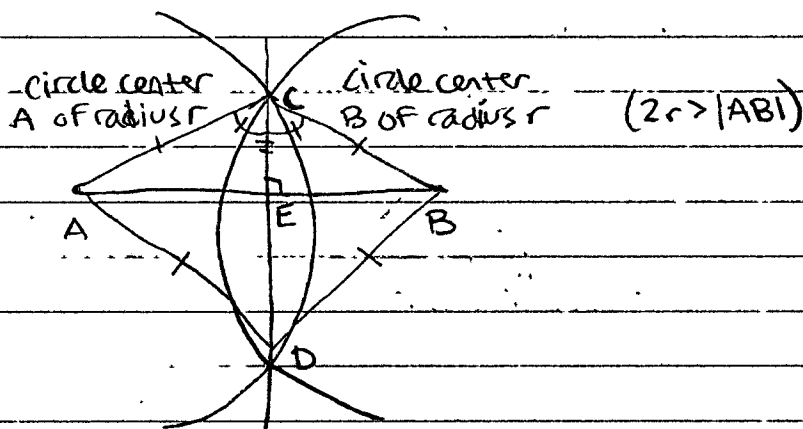 circle center
A of radius r
C
circle center
B of radius r
(2r > |AB|)
A
E
B
D